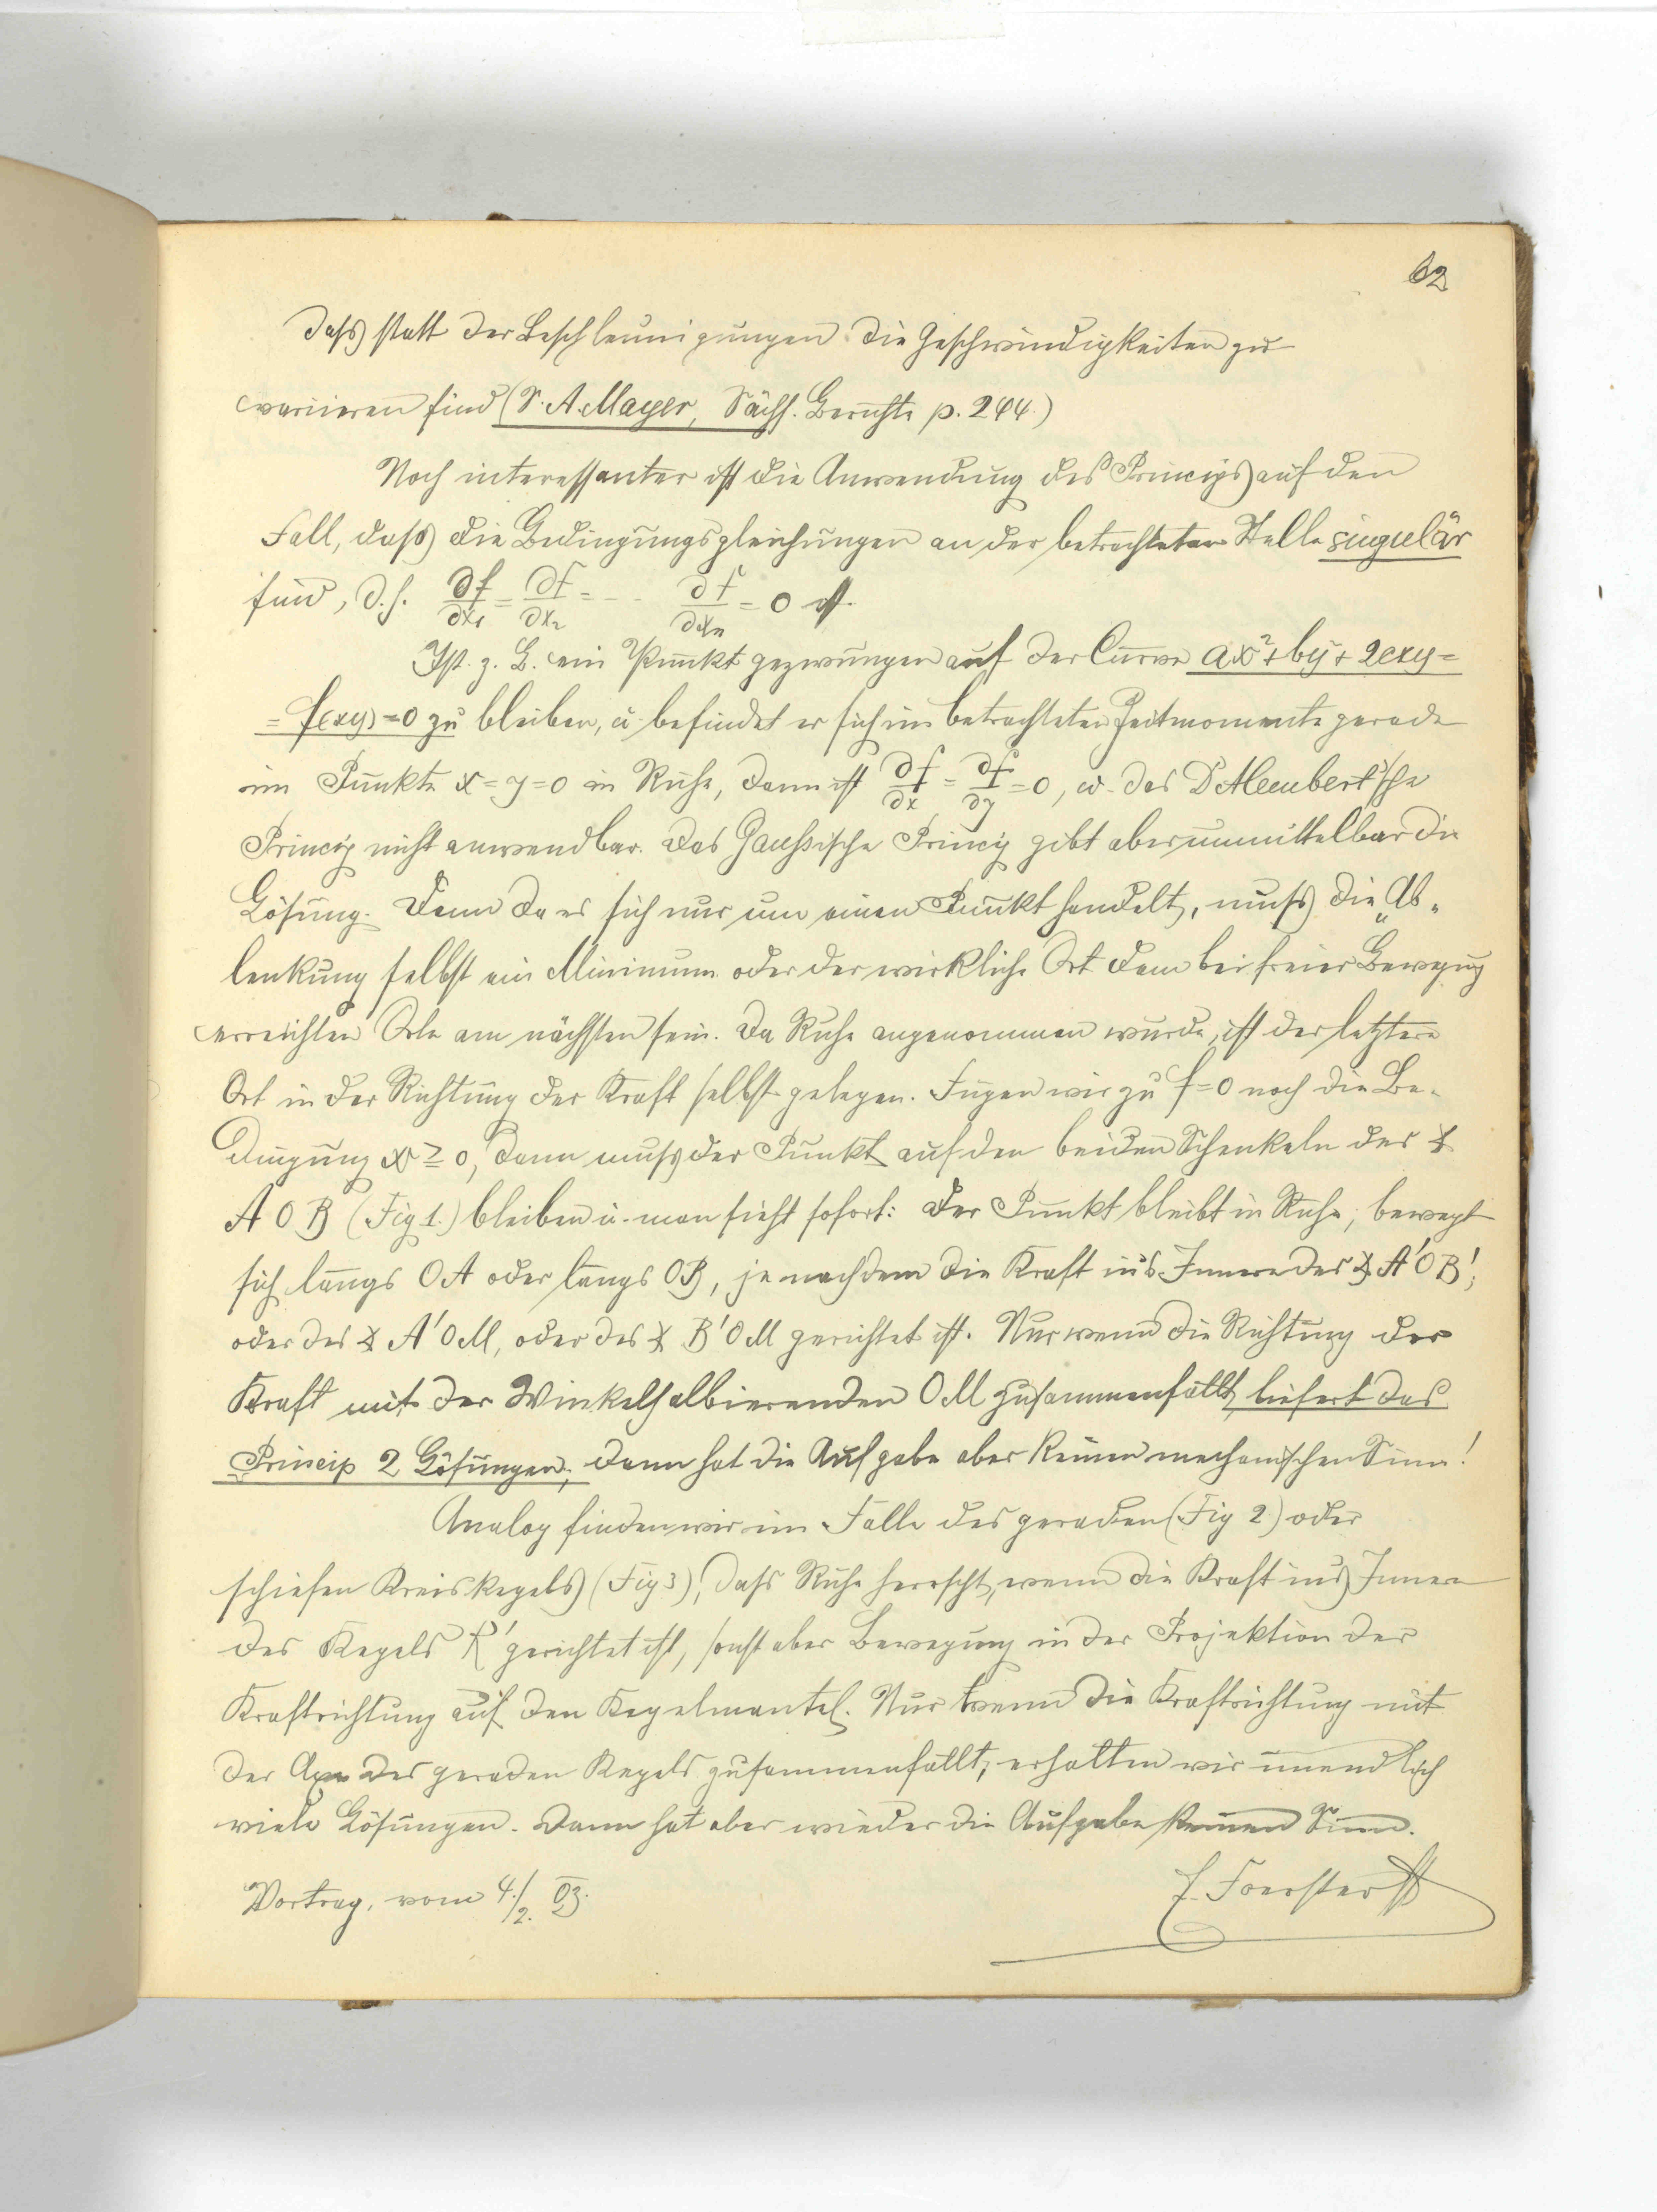 62
dass statt der Beschleunigungen die Geschwindigkeiten zu
variieren sind (S. A. Mayer, Sächs. Berichte p. 244.)
Noch interessanter ist die Anwendung des Princips auf den
Fall, dass die Bedingungsgleichungen an der betrachteten Stelle singulär
sind, d.h. ∂f/∂x₁ = ∂f/∂x₂ = - - ∂f/∂xₙ = 0 ist.
Ist z. B. ein Punkt gezwungen auf der Curve ax² + by² + 2cxy =
= f(xy) = 0 zu bleiben, u. befindet er sich im betrachteten Zeitmomente gerade
im Punkte x = y = 0 in Ruhe, dann ist ∂f/∂x = ∂f/∂y = 0, u. das D'Alembert'sche
Princip nicht anwendbar. Das Gaussische Princip gibt aber unmittelbar die
Lösung. Denn da es sich nur um einen Punkt handelt, muss die „Ab-
lenkung selbst ein Minimum oder der wirkliche Ort dem bei freier Bewegung
erreichten Orte am nächsten sein. Da Ruhe angenommen wurde, ist der letztere
Ort in der Richtung der Kraft selbst gelegen. Fügen wir zu f = 0 noch die Be-
dingung x ≧ 0, dann muss der Punkt auf den beiden Schenkeln des ∢
A O B (Fig 1.) bleiben u. man sieht sofort: Der Punkt bleibt in Ruhe, bewegt
sich längs OA oder längs OB, je nachdem die Kraft ins Innere des ∢ A'OB';
oder des ∢ A'OM, oder des ∢ B'OM gerichtet ist. Nur wenn die Richtung der
Kraft mit der Winkelhalbierenden OM zusammenfällt, liefert das
Princip 2 Lösungen; dann hat die Aufgabe aber keinen mechanischen Sinn!
Analog finden wir im Falle des geraden (Fig 2) oder
schiefen Kreiskegels (Fig 3), dass Ruhe herrscht, wenn die Kraft ins Innere
des Kegels K' gerichtet ist, sonst aber Bewegung in der Projektion der
Kraftrichtung auf den Kegelmantel. Nur wenn die Kraftrichtung mit
der Axe des geraden Kegels zusammenfällt, erhalten wir unendlich
viele Lösungen. Dann hat aber wieder die Aufgabe keinen Sinn.
Vortrag, vom 4./2. 03.
E. Foerster